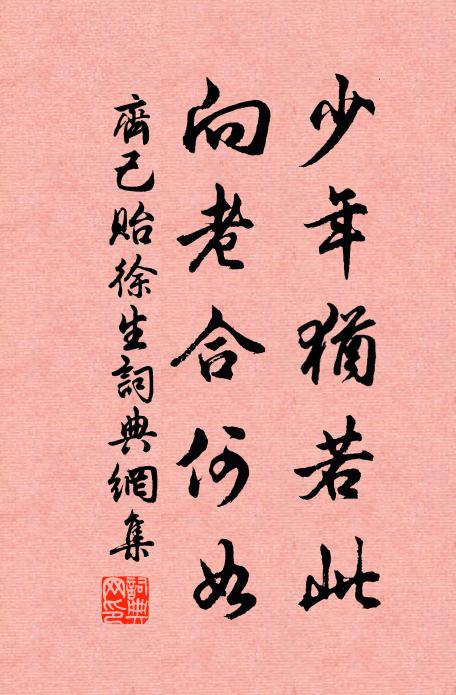 少年猶若此
向老合何如
齊己貽徐生詞典網集
詞典網印